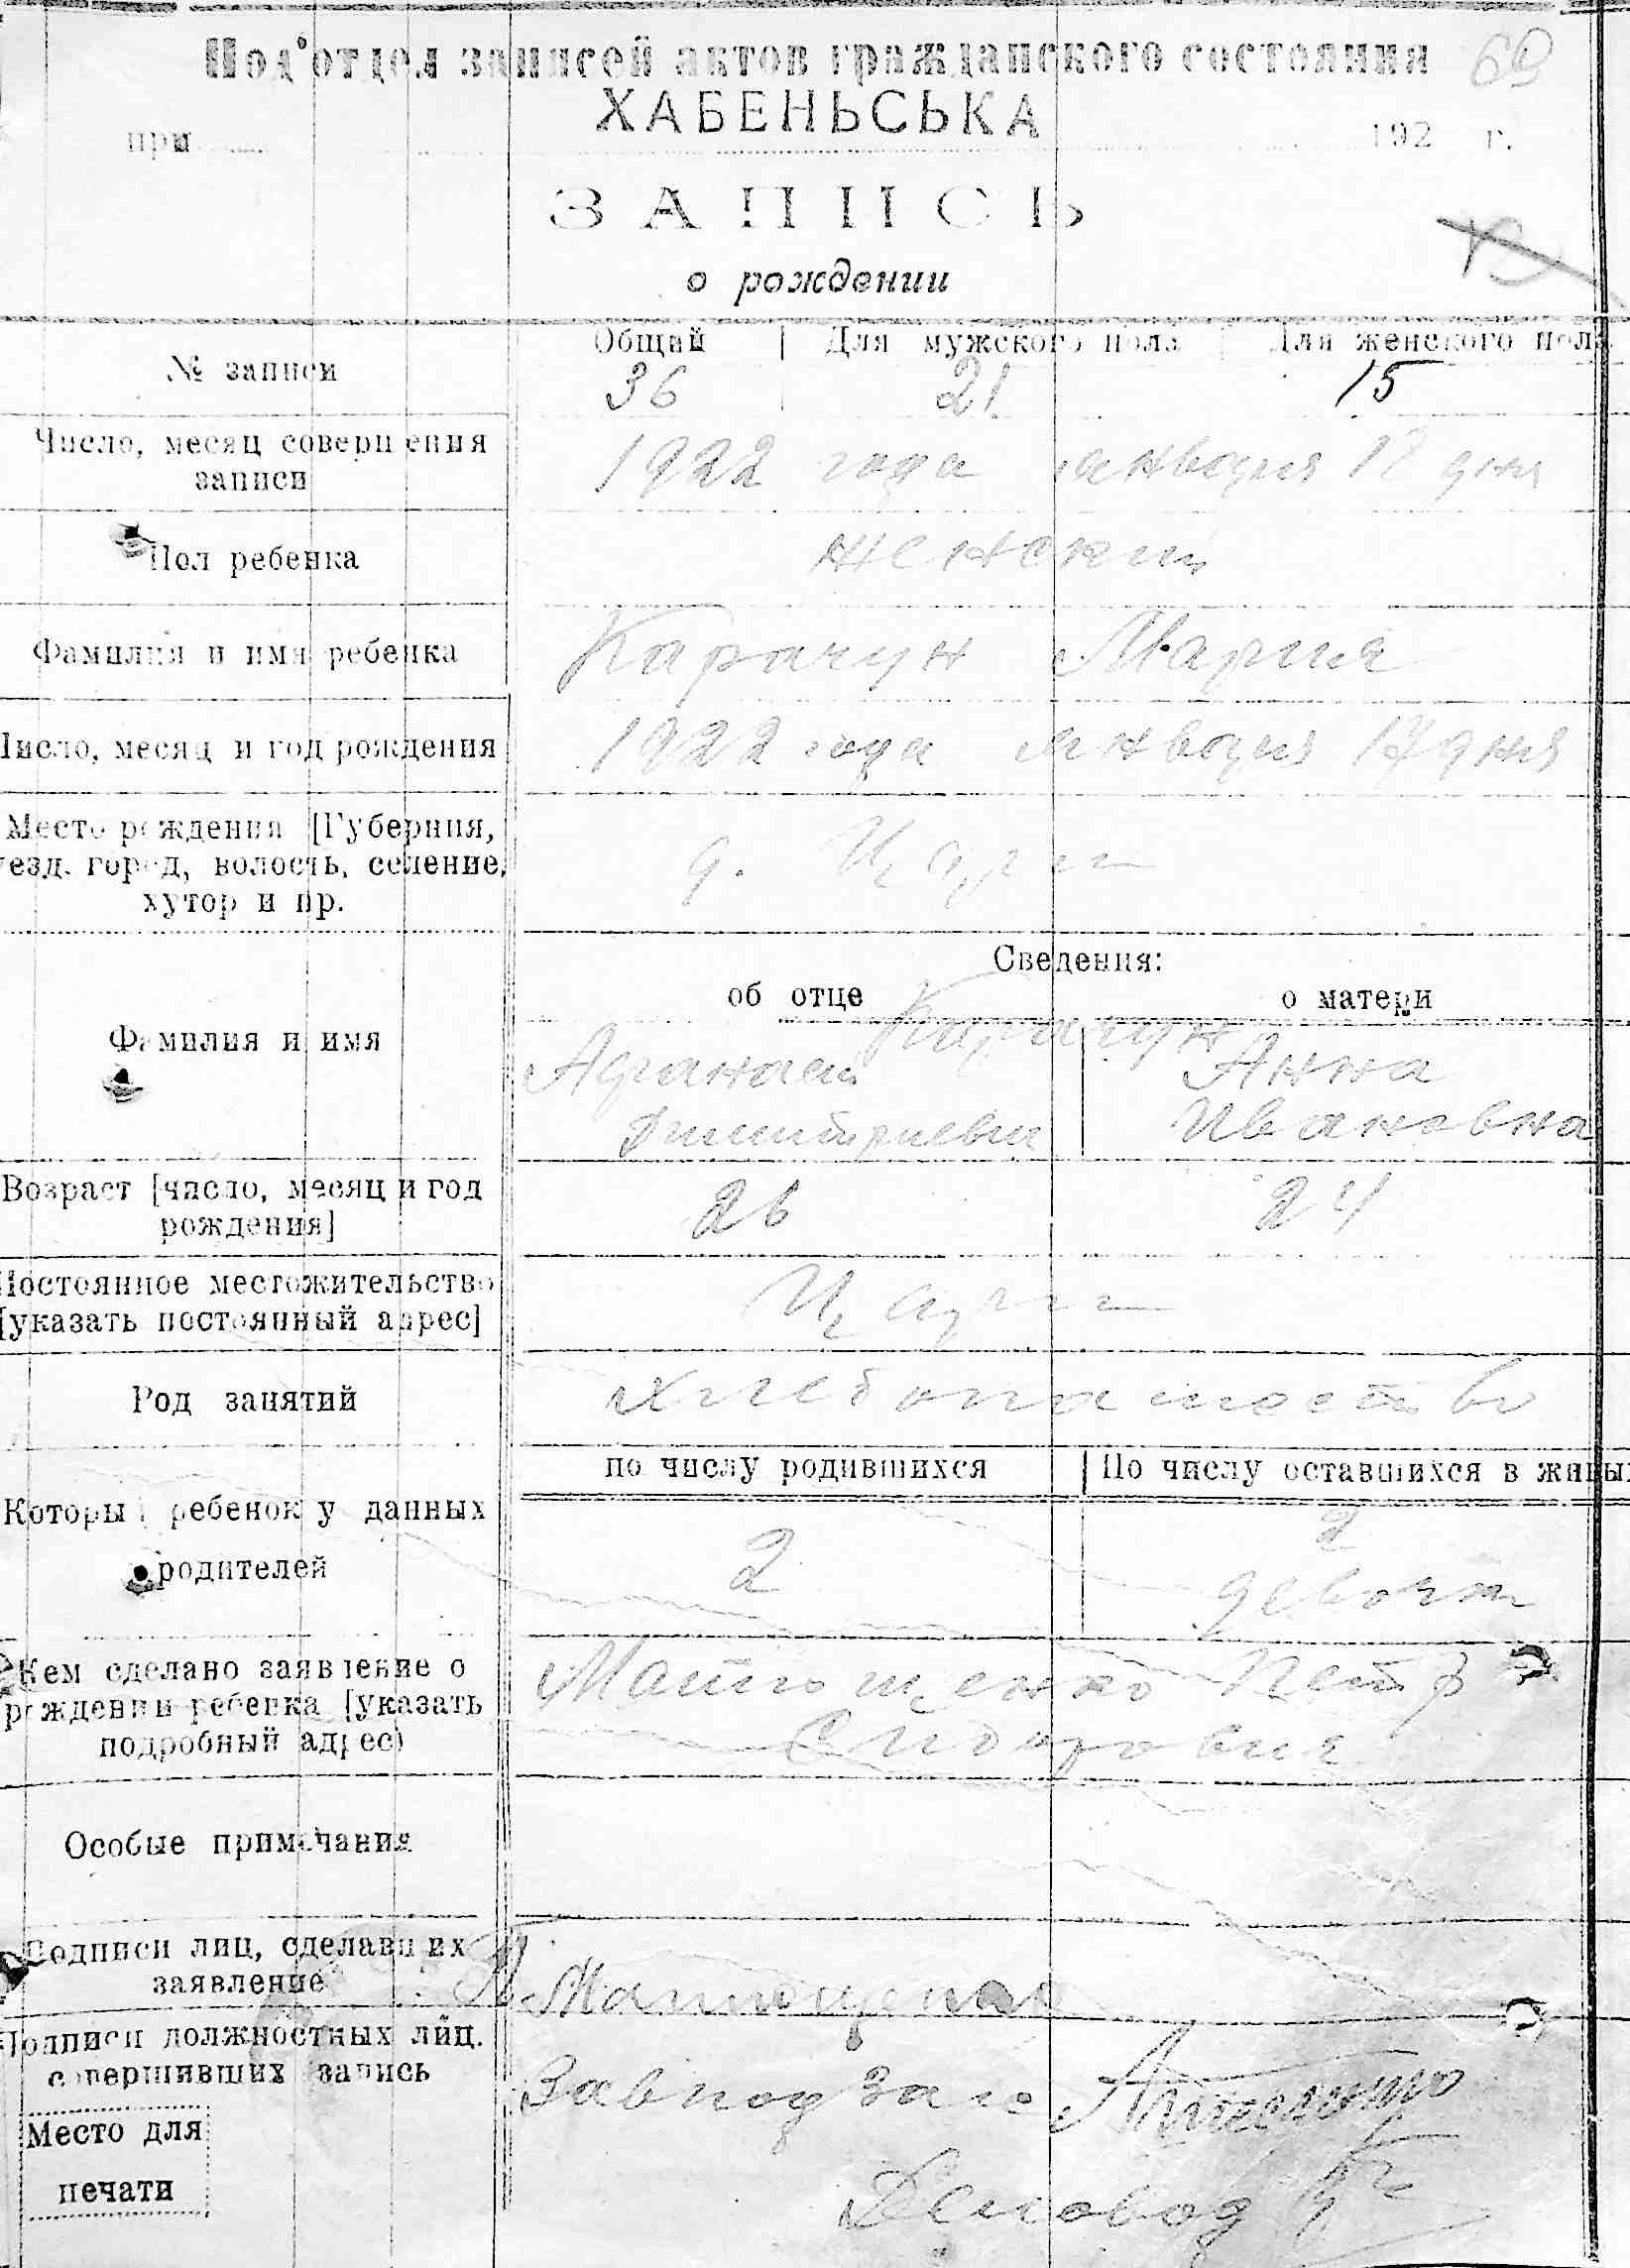 Под'отдел записей актов гражданского состояния 69
ХАБЕНЬСЬКА
при 192 г.
ЗАПИСЬ
о рождении
№ записи
Общий Для мужского пола Для женского пола
36 21 15
Число, месяц совершения
записи
1922 года января 18 дня
Пол ребенка
женский
Фамилия и имя ребенка
Карачун Мария
Число, месяц и год рождения
1922 года января 17 дня
Место рождения [Губерния,
уезд, город, волость, селение,
хутор и пр.
д.
Сведения:
об отце о матери
Фамилия и имя
Карачун
Афанасий Анна
Дмитриевич Ивановна
Возраст [число, месяц и год
рождения]
26 24
Постоянное местожительство
[указать постоянный адрес]
Род занятий
хлебопашество
по числу родившихся По числу оставшихся в живых
Который ребенок у данных
родителей
2 2
Кем сделано заявление о
рождении ребенка [указать
подробный адрес)
Матющенко Петр
Особые примечания
Подписи лиц, сделавших
заявление
П Матющенко
Подписи должностных лиц,
совершивших запись
Завподзагс
Место для
печати
Деловод